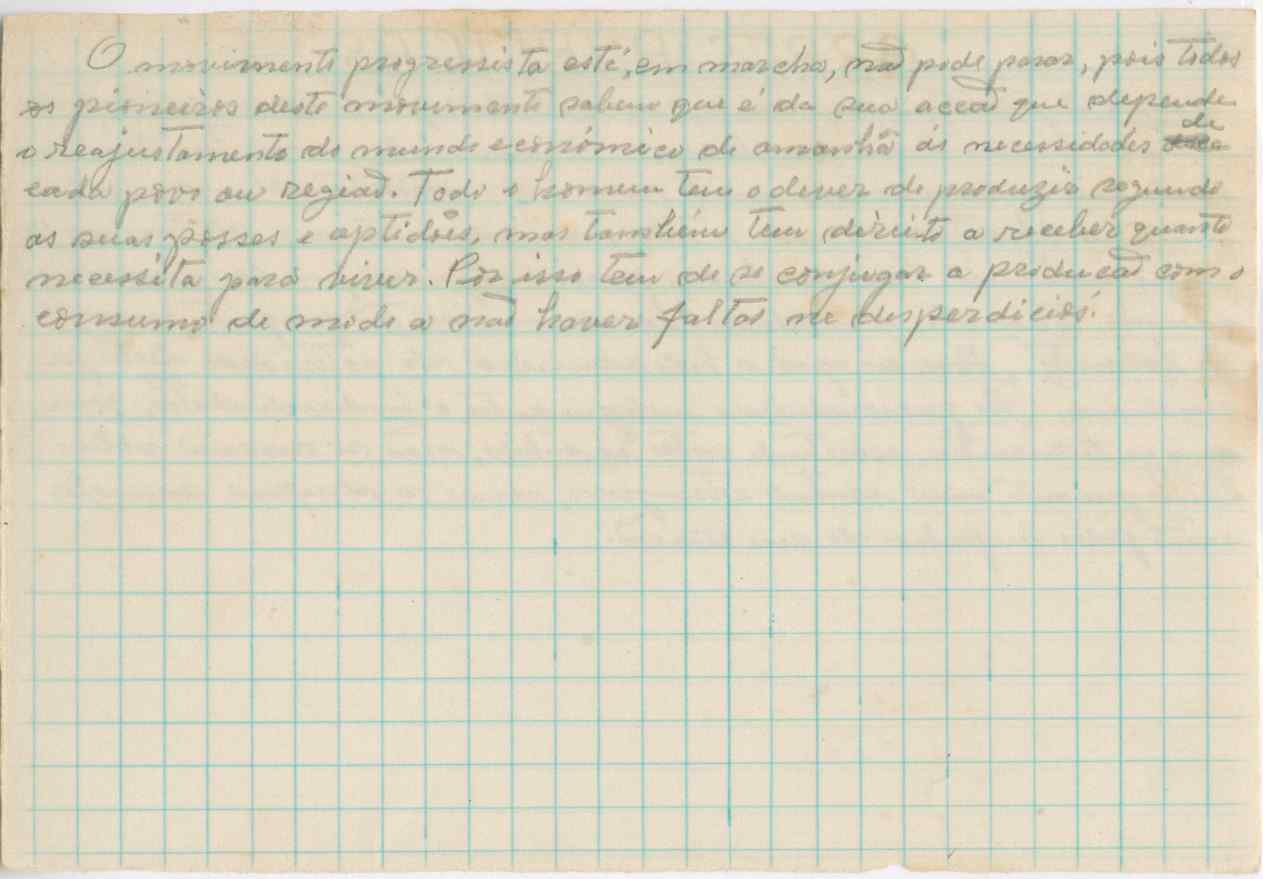 O movimento progressista está, em marcha, não pode parar, pois todos
os pioneiros deste movimento sabem que é da sua acção que depende
o reajustamento do mundo económico de amanhã ás necessidades de
cada povo ou região. Todo o homem tem o dever de produzir segundo
as suas posses e aptidões, mas também tem direito a receber quanto
necessita para viver. Por isso tem de se conjugar a produção com o
consumo de modo a não haver faltas ne desperdicios.